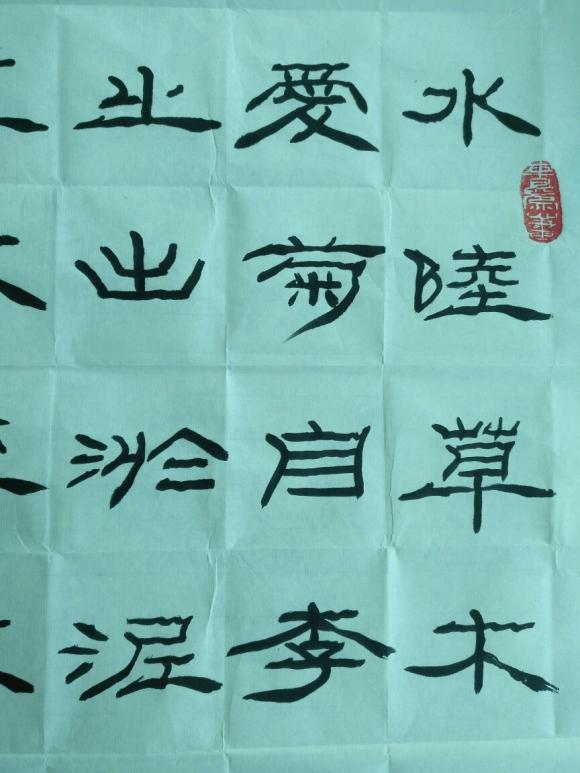 水陸草木
愛菊自李
之出淤泥